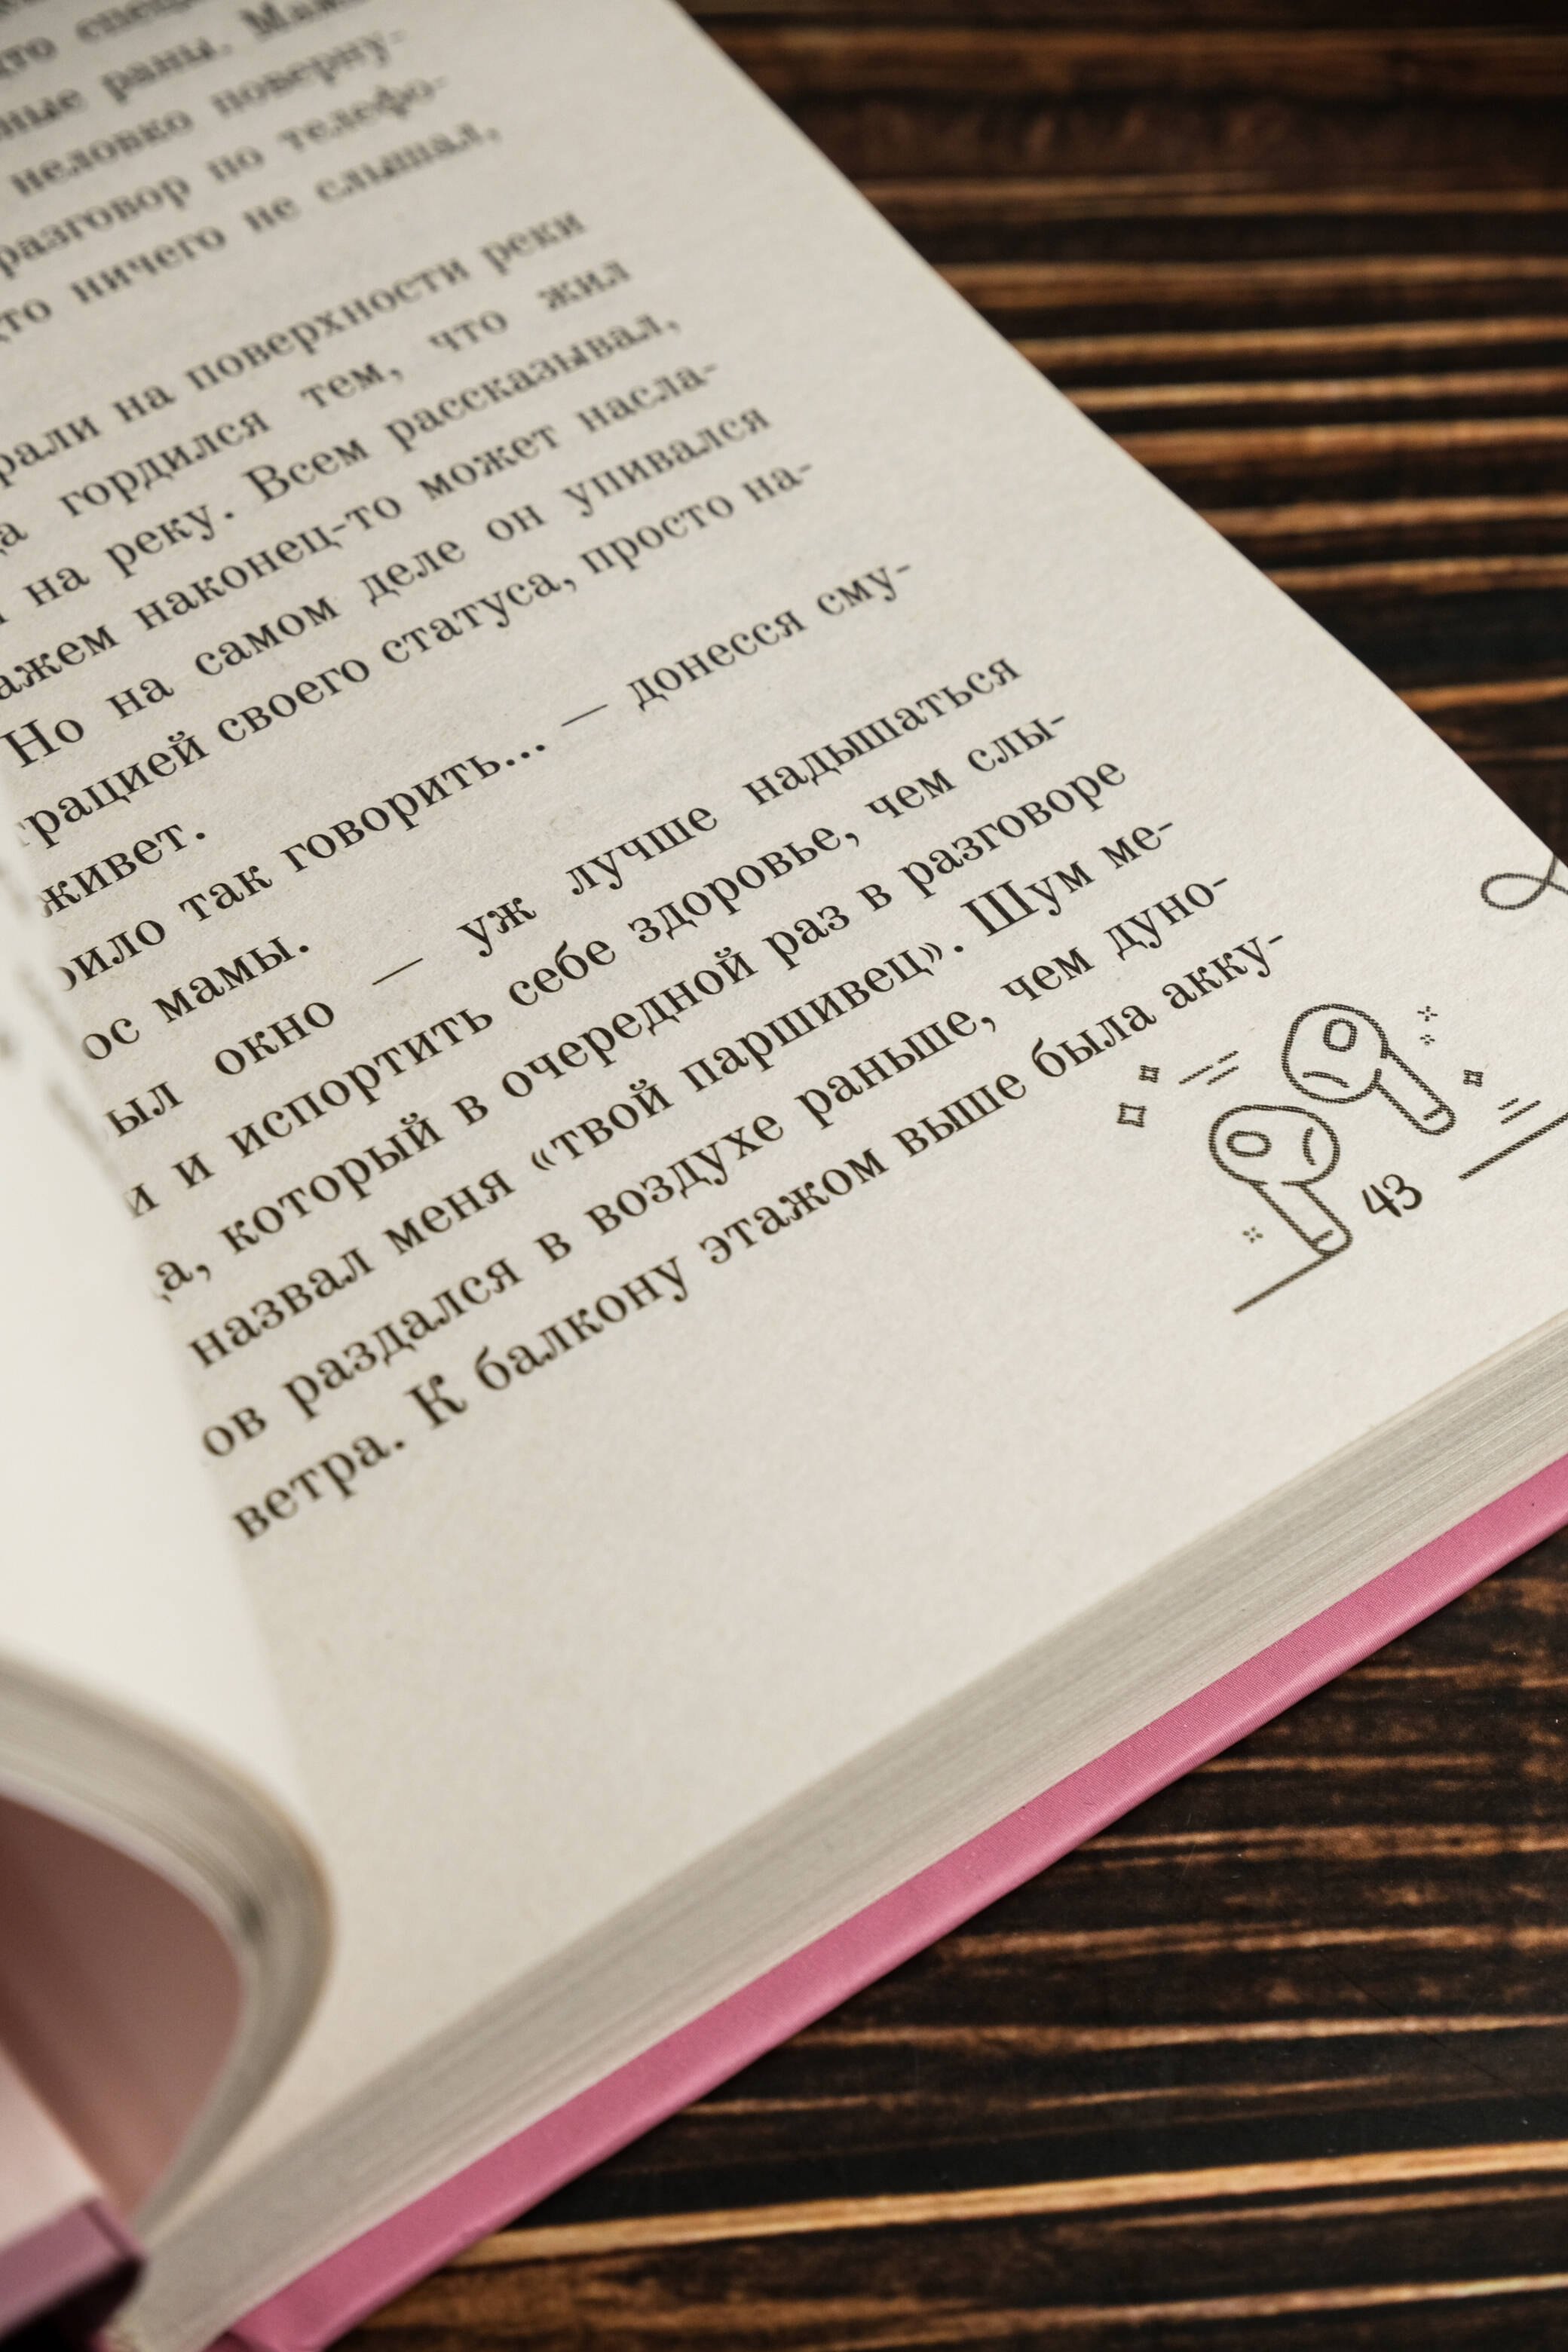 раны.
неловко поверну-
разговор по телефо-
ничего не слышал,
на поверхности реки
гордился тем, что жил
на реку. Всем рассказывал,
наконец-то может насла-
Но на самом деле он упивался
трацией своего статуса, просто на-
живет.
так говорить... — донесся сму-
мамы.
окно — уж лучше надышаться
и испортить себе здоровье, чем слы-
который в очередной раз в разговоре
назвал меня «твой паршивец». Шум ме-
ов раздался в воздухе раньше, чем дуно-
ветра. К балкону этажом выше была акку-
43